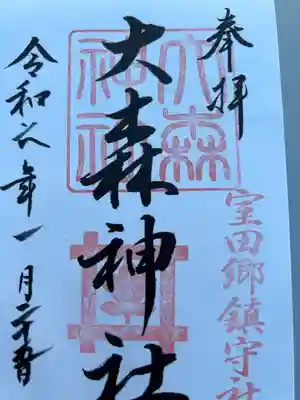 奉拝
宝田郷鎮守社
大森神社
大森神社
令和六年一月二十五日